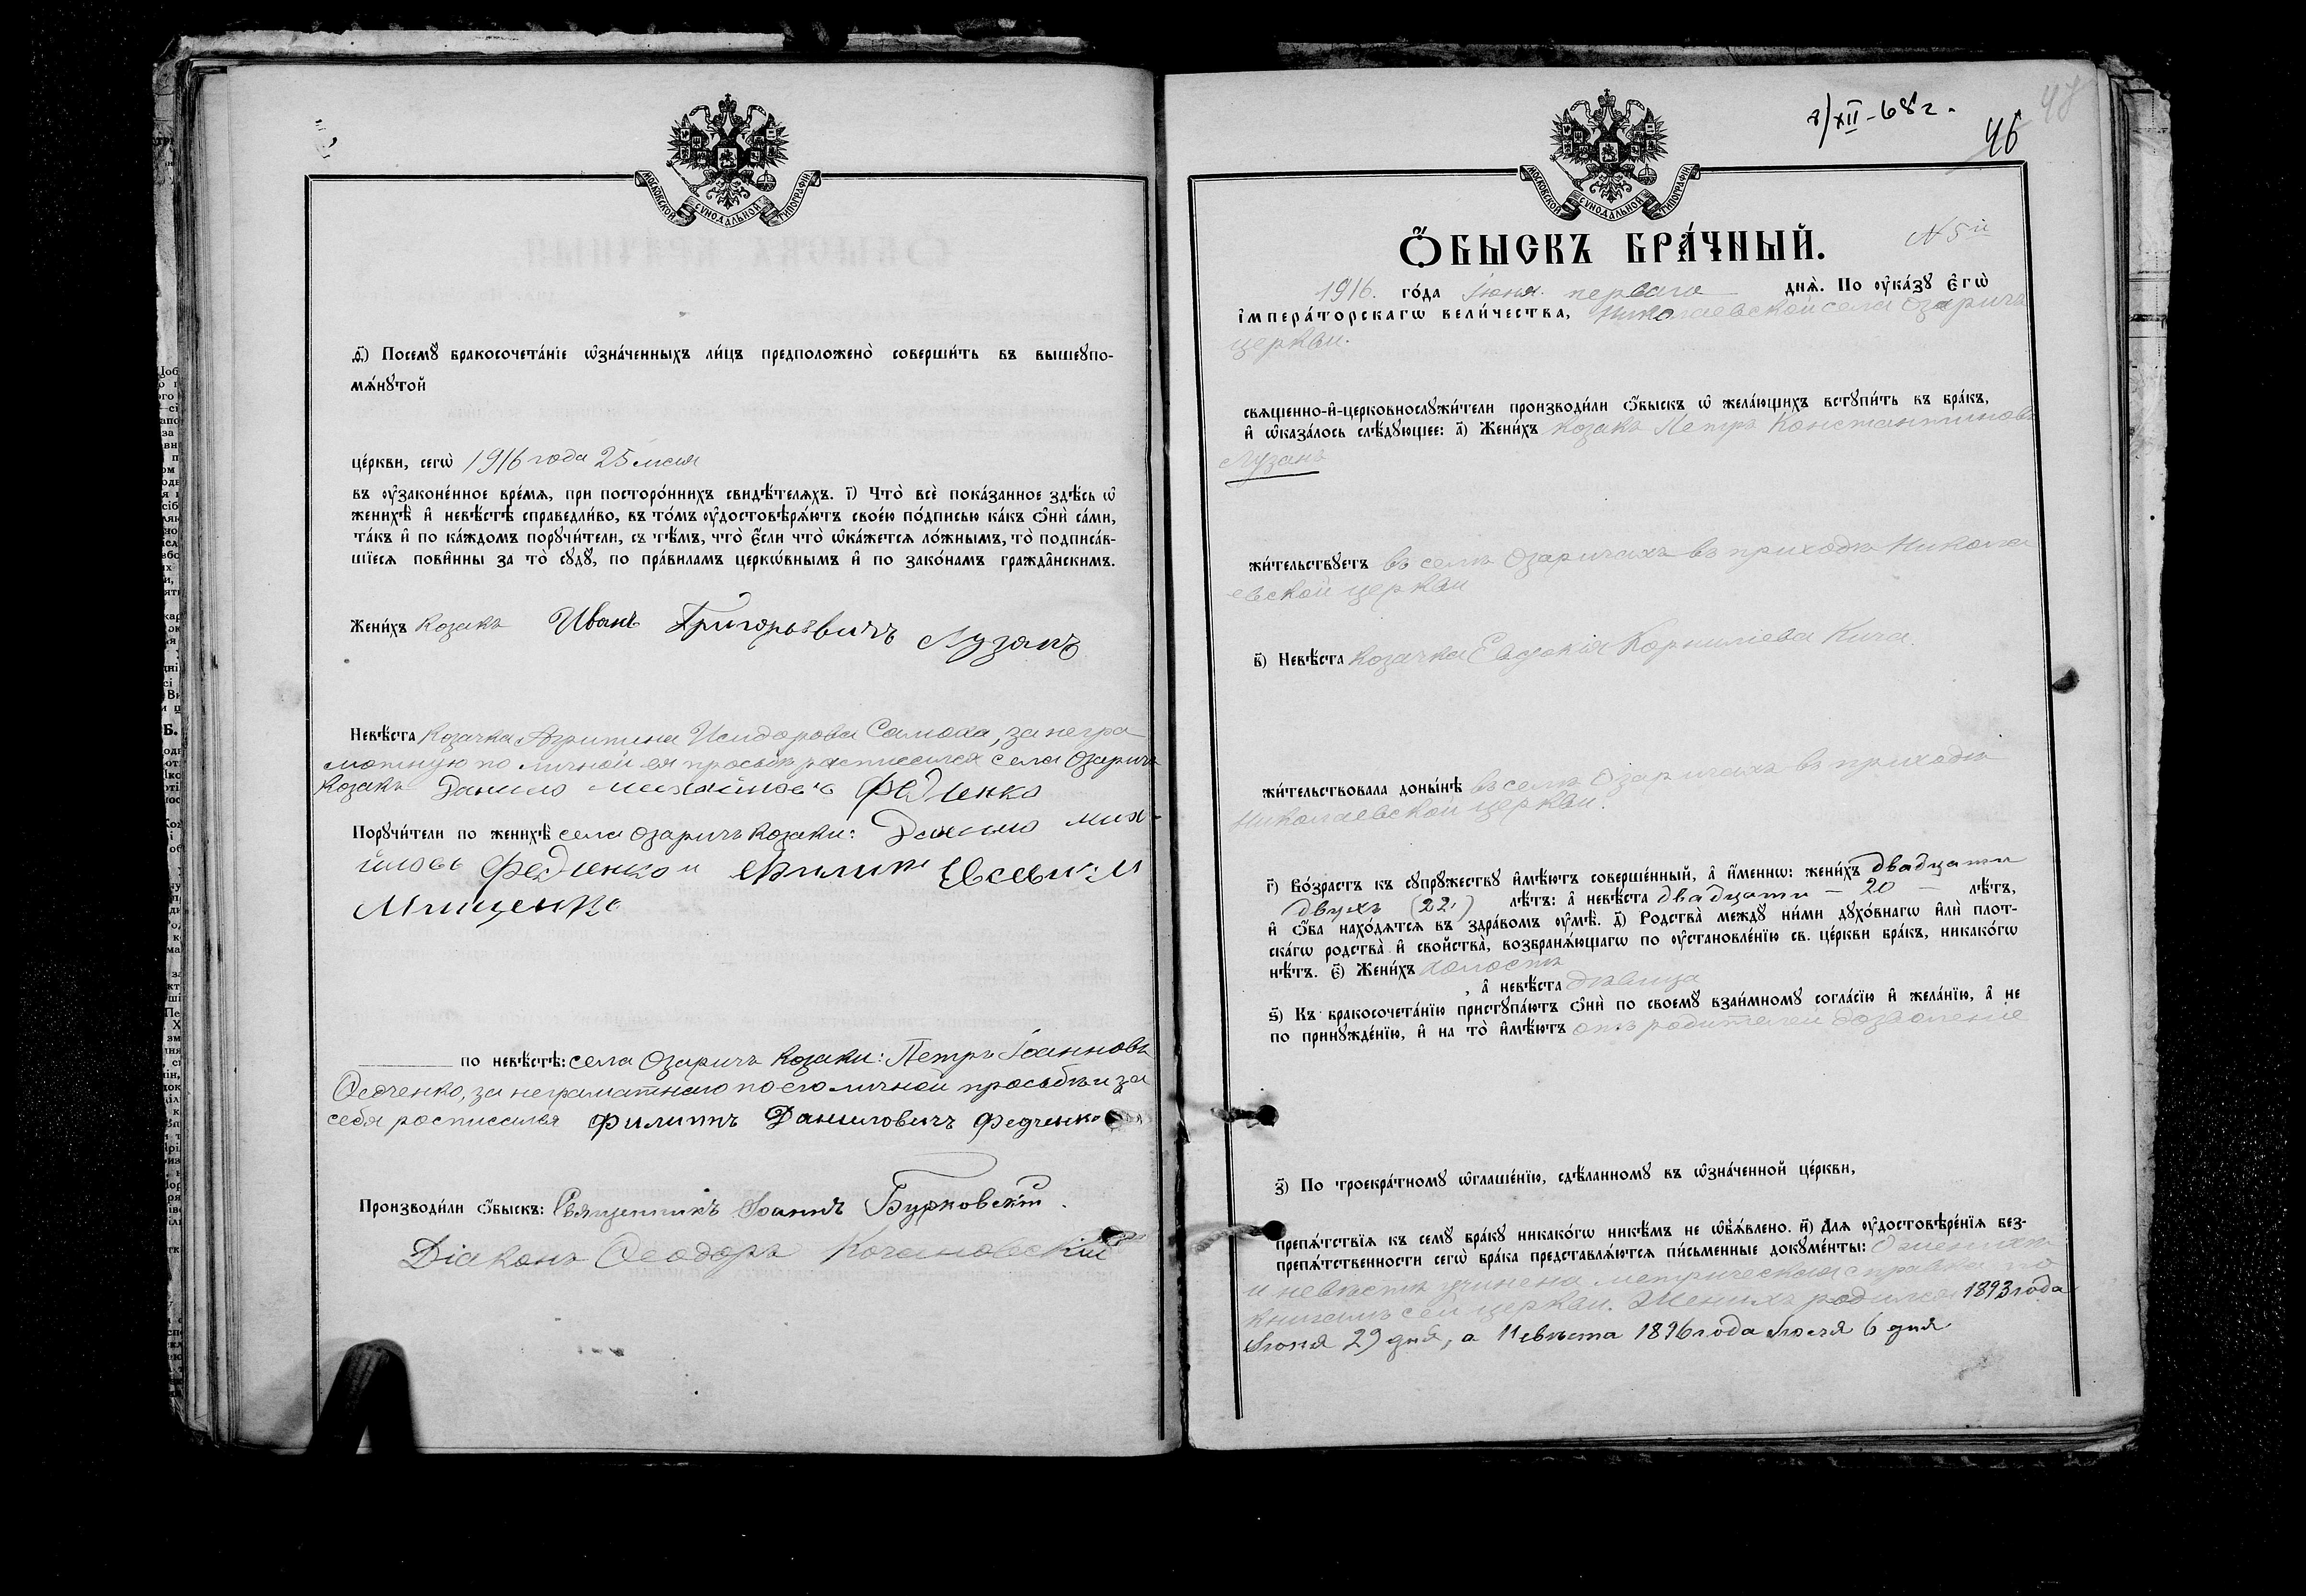 МОСКОВСКОЙ СѴНОДАЛЬНОЙ ТИПОГРАФІИ
ѳ҃) Посемꙋ бракосочета́ніе ѡ҆зна́ченныхъ ли́цъ предположено̀ соверши́ть въ вышеꙋпо-
мѧ́нꙋтой
це́ркви, сегѡ̀ 1916 года 25 мая
въ ᲂу҆законе́нное вре́мѧ, при посторо́ннихъ свидѣ́телѧхъ. і҃) Что̀ всѐ пока́занное здѣ́сь ѡ҆
женихѣ̀ и҆ невѣ́стѣ справедли́во, въ то́мъ ᲂу҆достовѣрѧ́ютъ свое́ю по́дписью ка́къ ѻ҆нѝ са́ми,
та́къ и҆ по ка́ждомъ порꙋчи́тели, съ тѣ́мъ, что̀ є҆́сли что̀ ѡ҆ка́жетсѧ ло́жнымъ, то̀ подписа́в-
шїесѧ пови́нны за то̀ сꙋдꙋ̀, по пра́виламъ церкѡ́внымъ и҆ по зако́намъ гражда́нскимъ.
Жени́хъ козакъ Иванъ Григорьевичъ Лузанъ
Невѣ́ста козачка Агрипина Исидорова Самоха, за негра
мотную по личной ея просьбѣ расписался села Озаричъ
козакъ Данило Михайловъ Федченко
Порꙋчи́тели по женихѣ̀ села Озаричъ козаки: Данило Мих-
йловъ Федченко и Филипъ
Мищенко
по невѣ́стѣ: села Озаричъ козаки: Петръ Іоанновъ
Ѳедченко, за неграматнаго по его личной просьбѣ и за
себя росписился Филиппъ Даниловичъ Федченко
Производи́ли ѻ҆́быскъ: Священникъ Іоаннъ Бурковскій.
Діаконъ Ѳеодоръ Качановскій
8/XII-68 г.
48
46
МОСКОВСКОЙ СѴНОДАЛЬНОЙ ТИПОГРАФІИ
Ѻ҆́БЫСКЪ БРА́ЧНЫЙ.
N 5й
1916. го́да Іюня перваго днѧ̀. По ᲂу҆ка́зꙋ є҆гѡ̀
і҆мпера́торскагѡ вели́чества, Николаевской села Озаричъ
церкви.
свѧще́нно-и҆-церковнослꙋжи́тели производи́ли ѻ҆́быскъ ѡ҆ жела́ющихъ встꙋпи́ть въ бра́къ,
и҆ ѡ҆каза́лось слѣ́дꙋющее: а҃) Жени́хъ козакъ Петръ Константиновъ
Лузанъ
жи́тельствꙋетъ въ селѣ Озаричахъ въ приходѣ Никола
евской церкви
в҃) Невѣ́ста козачка Евдокія Корнилієва Кича
жи́тельствовала доны́нѣ въ селѣ Озаричахъ въ приходѣ
Николаевской церкви.
г҃) Во́зрастъ къ сꙋпрꙋ́жествꙋ и҆мѣ́ютъ соверше́нный, а҆ и҆́менно: жени́хъ двадцати
двухъ (22) лѣ́тъ: а҆ невѣ́ста двадцати – 20 – лѣ́тъ,
и҆ ѻ҆́ба нахо́дѧтсѧ въ здра́вомъ ᲂу҆мѣ̀. д҃) Родства̀ междꙋ̀ ни́ми дꙋхо́внагѡ и҆лѝ плот-
ска́гѡ родства̀ и҆ свойства̀, возбранѧ́ющагѡ по ᲂу҆становле́нїю св. це́ркви бра́къ, никако́гѡ
нѣ́тъ. є҃) Жени́хъ холостъ
, а҆ невѣ́ста дѣвица
ѕ҃) Къ бракосочета́нїю пристꙋпа́ютъ ѻ҆нѝ по своемꙋ̀ взаи́мномꙋ согла́сїю и҆ жела́нїю, а҆ не
по принꙋжде́нїю, и҆ на то̀ и҆мѣ́ютъ отъ родителей дозволеніе
з҃) По троекра́тномꙋ ѡ҆глаше́нїю, сдѣ́ланномꙋ въ ѡ҆зна́ченной це́ркви,
препѧ́тствїѧ къ семꙋ̀ бра́кꙋ никако́гѡ никѣ́мъ не ѡ҆б̾ѧ́влено. и҃) Длѧ ᲂу҆достовѣре́нїѧ без-
препѧ́тственности сегѡ̀ бра́ка представлѧ́ютсѧ пи́сьменные докꙋме́нты: О женихѣ
и невѣстѣ учинена метрическая справка по
книгамъ сей церкви. Женихъ родился 1893 года
Іюня 29 дня, а Невѣста 1896 года Іюля 6 дня